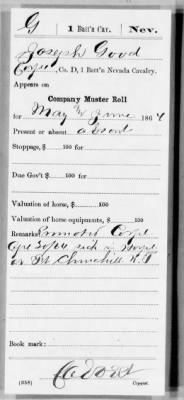 G | 1 Batt'n Cav. | Nev.
Joseph Good
Corpl, Co. D, 1 Batt'n Nevada Cavalry.
Appears on
Company Muster Roll
for May & June, 1864
Present or absent absent
Stoppage, $ 100 for
Due Gov't $ 100 for
Valuation of horse, $ 100
Valuation of horse equipments, $ 100
Remarks: Promoted Corpl
Apl 30/64 sick in Hospl
at Ft Churchill N.T
Book mark:
(858) Copyist.